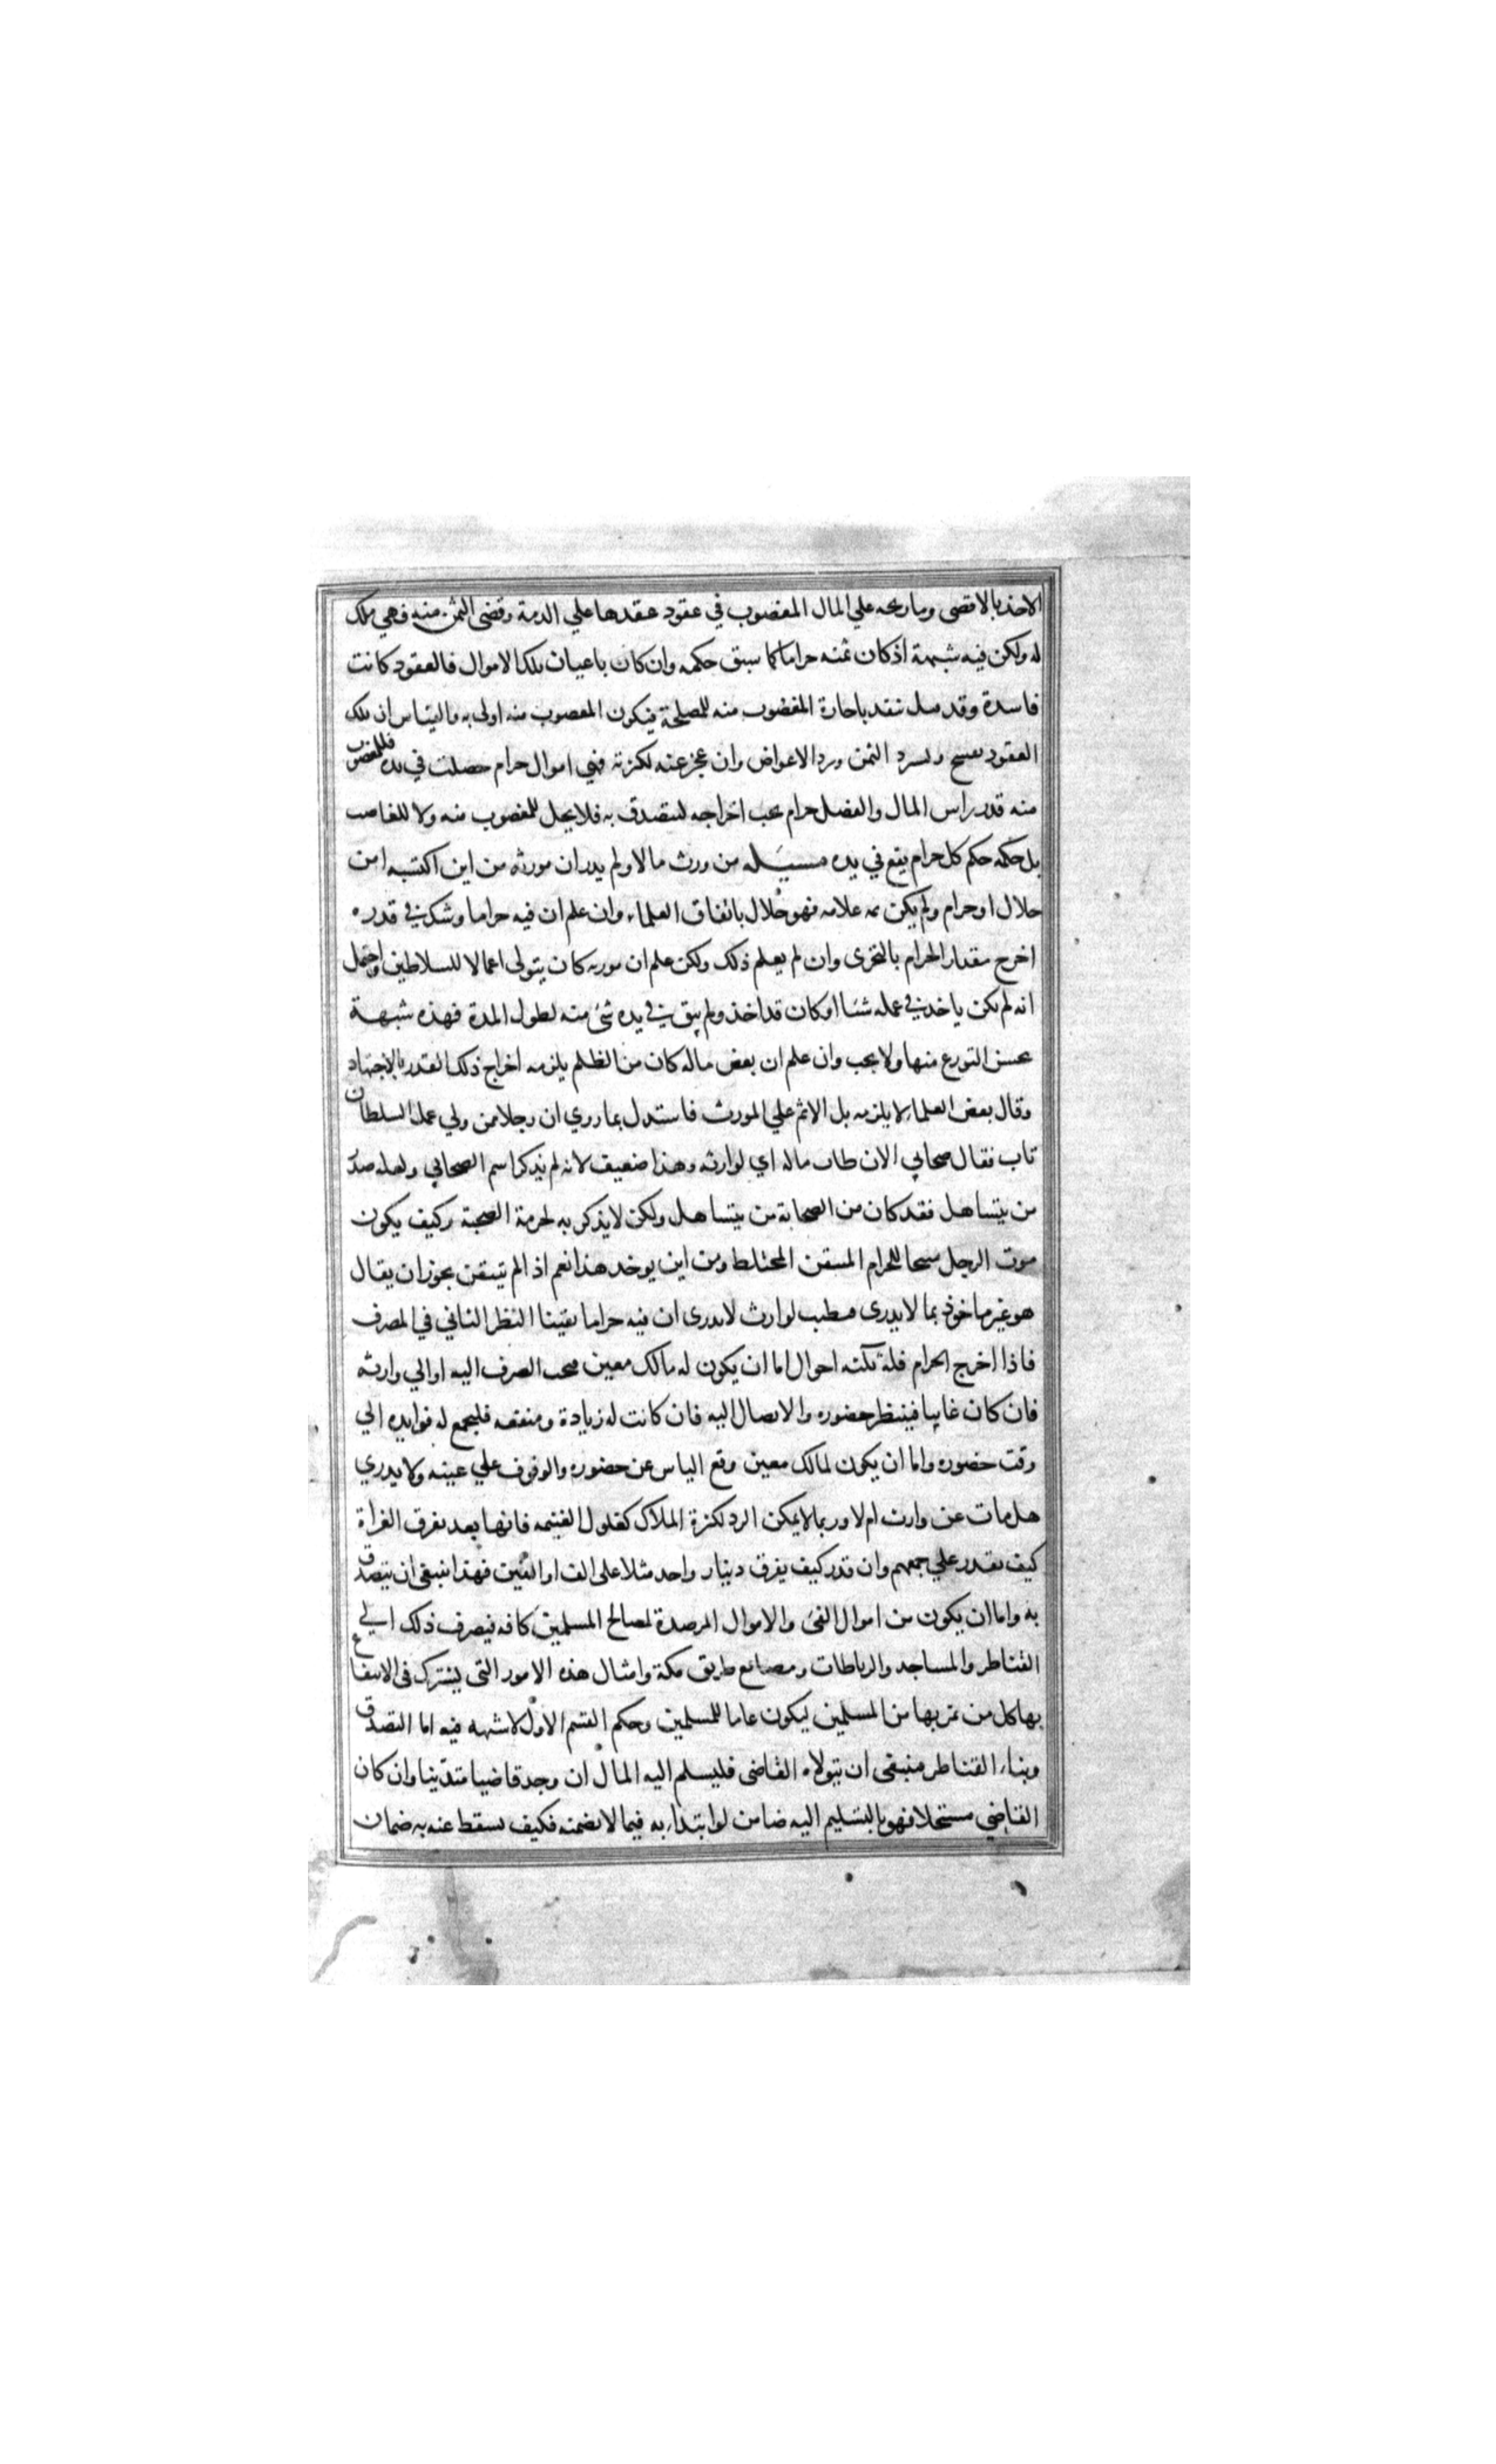 الاخذ بالاقصى وما ربحه علي المال المغصوب في عقود عقدها علي الذمة وقضى الثمن منه فهي ملك
له ولكن فيه شبهة اذ كان ثمنه حراما كما سبق حكمه وان كان باعيان تلك الاموال فالعقود كانت
فاسدة وقد قيل تنفذ باجازة المغصوب منه للمصلحة فيكون المغصوب منه اولى به والقياس ان تلك
العقود تفسخ وتسترد الثمن وترد الاعواض وان عجز عنه لكثرته فهي اموال حرام حصلت في يده فللمغصوب
منه قدر راس المال والفضل حرام يجب اخراجه ليتصدق به فلا يحل للمغصوب منه ولا للغاصب
بل حكمه حكم كل حرام يقع في يده مسيله من ورث مالا ولم يدر ان مورثه من اين اكتسبه امن
حلال او حرام ولم يكن ثمه علامه فهو حلال باتفاق العلماء وان علم ان فيه حراما وشك في قدره
اخرج مقدار الحرام بالتحرى وان لم يعلم ذلك ولكن علم ان مورثه كان يتولى اعمالا للسلاطين واحتمل
انه لم يكن ياخذ في عمله شئا او كان قد اخذ ولم يبق في يده شئ منه لطول المدة فهذه شبهة
يحسن التورع منها ولا يجب وان علم ان بعض ماله كان من الظلم يلزمه اخراج ذلك القدر بالاجتهاد
وقال بعض العلماء لا يلزمه بل الاثم علي المورث فاستدل بما روي ان رجلا من ولي عمل السلطان
تاب فقال صحابي الان طاب ماله اي لوارثه وهذا ضعيف لانه لم يذكر اسم الصحابي ولعله صدر
من يتساهل فقد كان من الصحابة من يتساهل ولكن لا يذكر به لحرمة الصحبة وكيف يكون
موت الرجل مبيحا للحرام المتيقن المختلط ومن اين يوخذ هذا نعم اذا لم يتيقن يجوز ان يقال
هو غير ماخوذ بما لا يدرى فيطيب لوارث لا يدرى ان فيه حراما يقينا النظر الثاني في المصرف
فاذا اخرج الحرام فله ثلثه احوال اما ان يكون له مالك معين فيجب الصرف اليه او الي وارثه
فان كان غايبا فينتظر حضوره والايصال اليه فان كانت له زيادة ومنفعه فليجمع له فوايده الي
وقت حضوره واما ان يكون لمالك معين وقع الياس عن حضوره والوقوف علي عينه ولا يدري
هل مات عن وارث ام لا وربما لا يمكن الرد لكثرة الملاك كغلول الغنيمه فانها بعد تفرق الغزاة
كيف تقدر علي جمعهم وان قدر كيف يفرق دينار واحد مثلا على الف او الفين فهذا ينبغي ان يتصدق
به واما ان يكون من اموال الفئ والاموال المرصدة لمصالح المسلمين كافه فيصرف ذلك الي
القناطر والمساجد والرباطات ومصانع طريق مكة وامثال هذه الامور التى يشترك فى الانتفاع
بها كل من يمر بها من المسلمين ليكون عاما للمسلمين وحكم القسم الاول لا شبهه فيه اما التصدق
وبناء القناطر فينبغي ان يتولاه القاضى فليسلم اليه المال ان وجد قاضيا متدينا وان كان
القاضي مستحلا فهو بالتسليم اليه ضامن لو ابتداء به فيما لا يضمنه فكيف يسقط عنه به ضمان